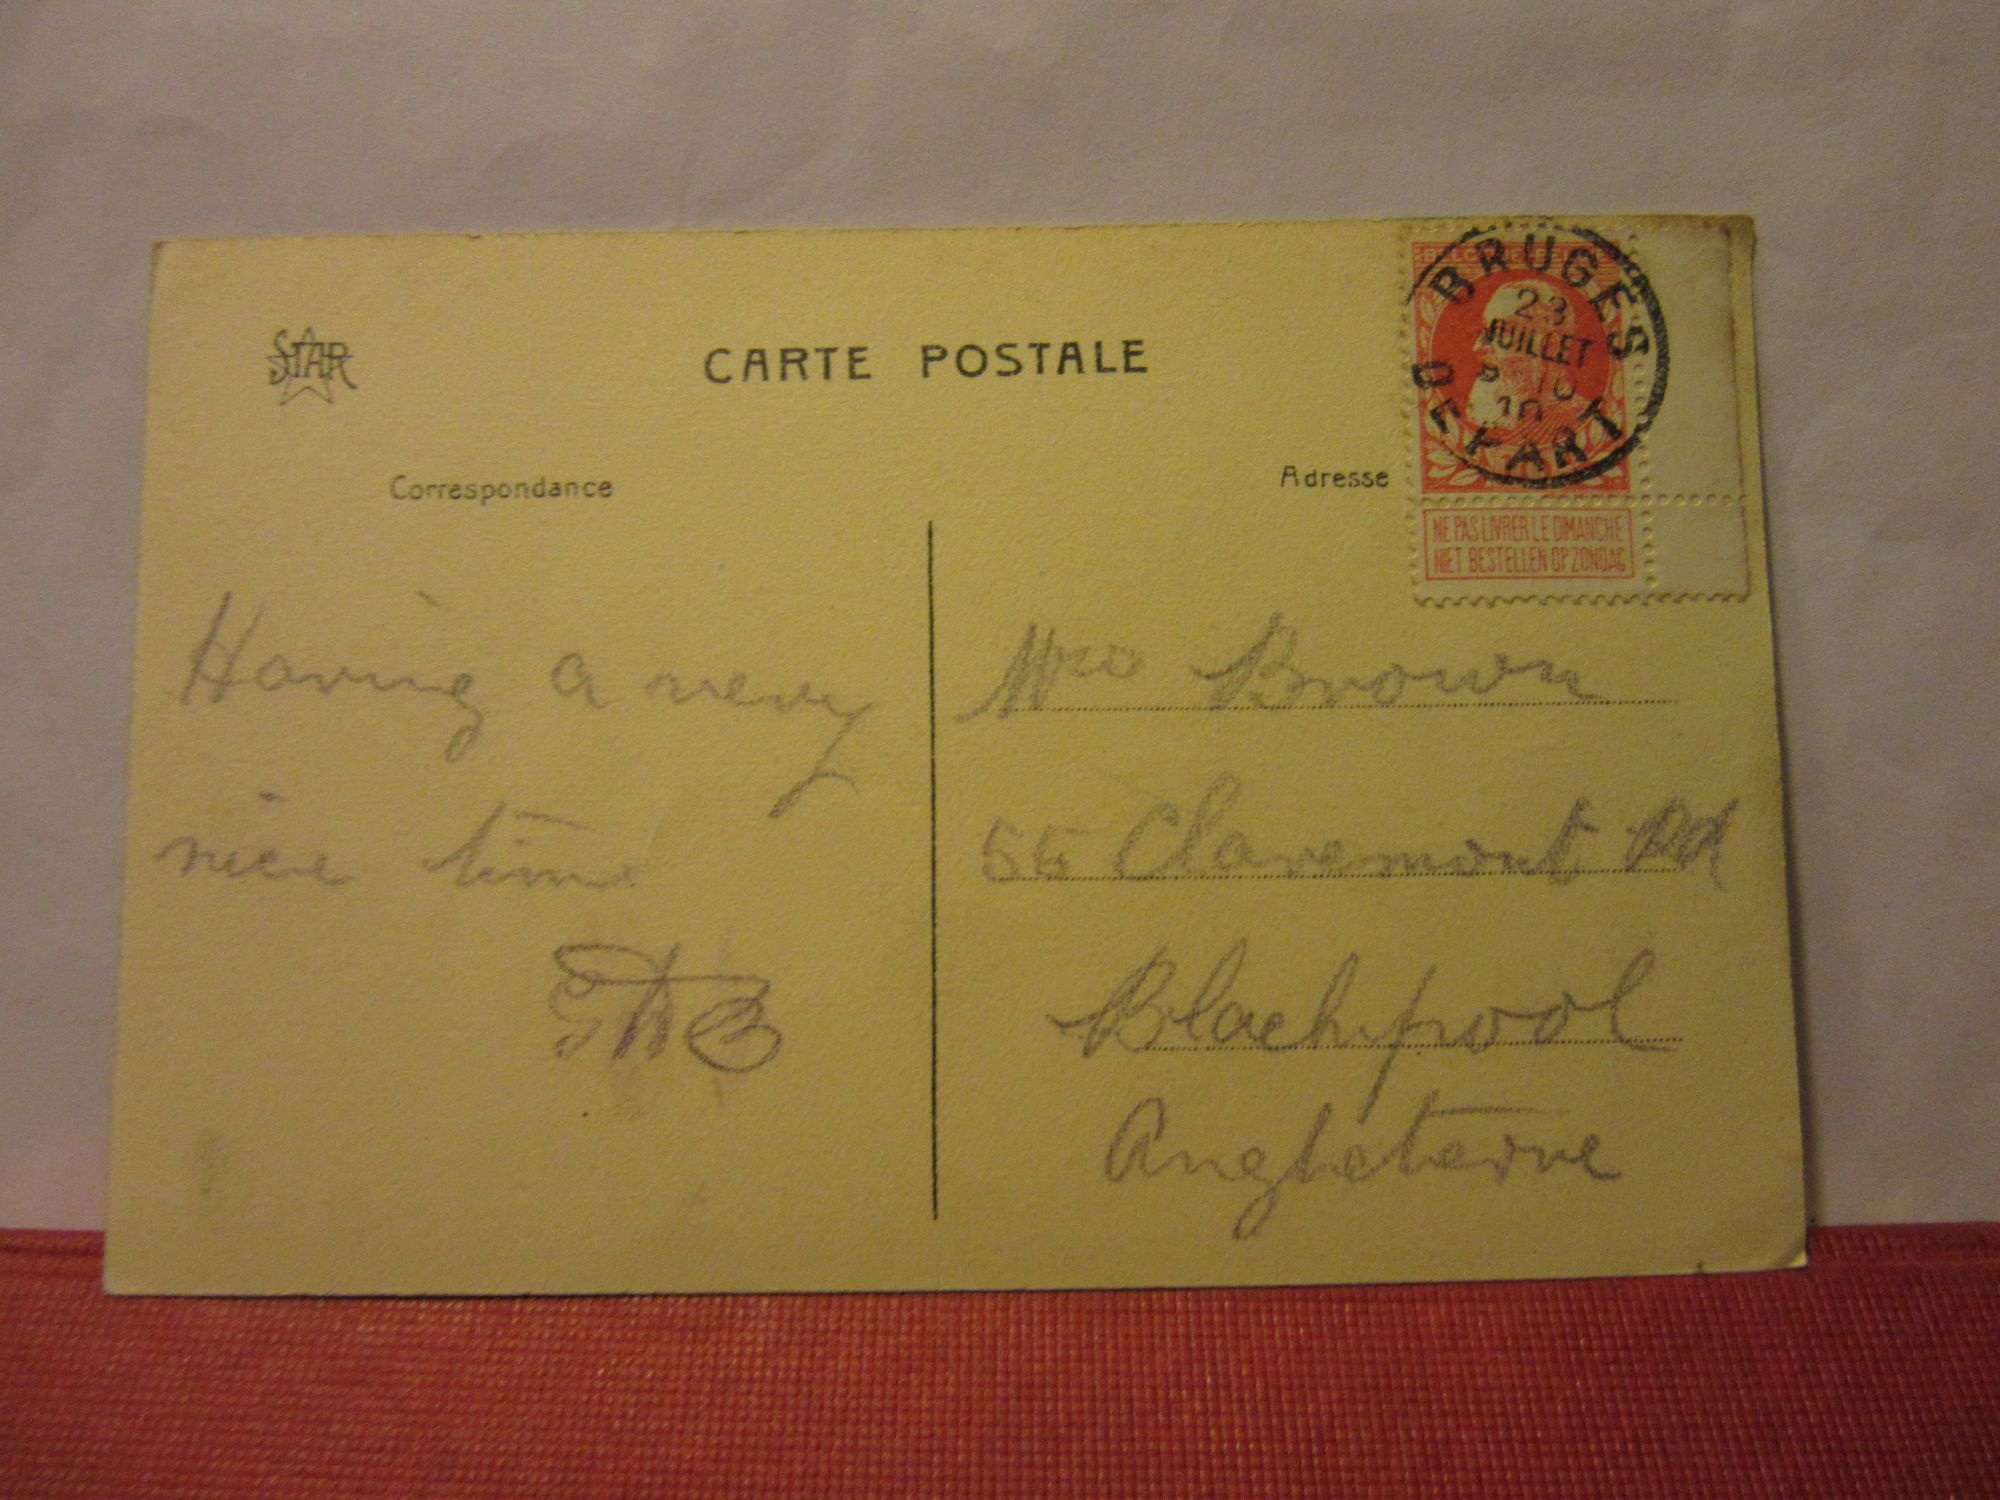 STAR
CARTE POSTALE
Correspondance
Adresse
BRUGES
23
JUILLET
10
KART
NE PAS LIVRER LE DIMANCHE
NIET BESTELLEN OP ZONDAG
Having a very
nice time
Mrs Brown
55 Claremont Rd
Blackpool
Angleterre